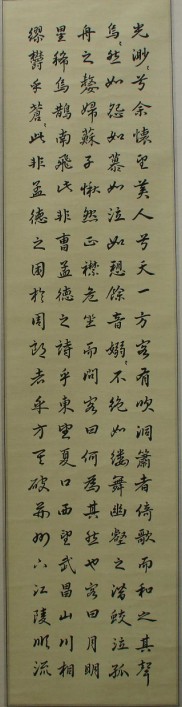 光渺〻兮余懷望美人兮天一方客有吹洞簫者倚歌而和之其聲
烏〻然如怨如慕如泣如愬餘音嫋〻不絕如縷舞幽壑之潛蛟泣孤
舟之嫠婦蘇子愀然正襟危坐而問客曰何為其然也客曰月明
星稀烏鵲南飛此非曹孟德之詩乎東望夏口西望武昌山川相
繆鬱乎蒼〻此非孟德之困於周郎者乎方其破荊州下江陵順流